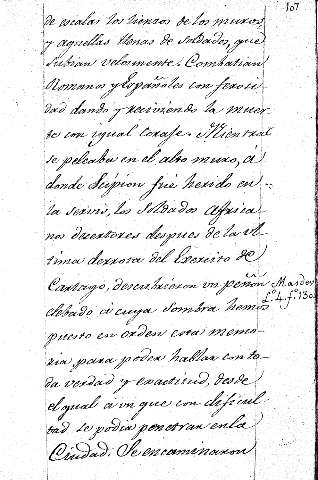 107
de escalas los lienzos de los muros,
y aquellas llenas de soldados, que
subian velozmente. Combatian
Romanos y Españoles con feroci-
dad dando y reciviendo la muer-
te con igual coraje. Mientras
se peleaba en el alto muro, a
donde Scipion fué herido en
la serviz, los soldados Africa-
nos desertores despues de la ul-
tima derrota del Exercito de
Cartago, descubrieron un peñon
elebado á cuya sombra hemos
puesto en orden esta memo-
ria, para poder hablar con to-
da verdad y exactitud, desde
el qual á un que con dificul-
tad se podia penetrar en la
Ciudad. Se encaminaron
Masdeu
t.º 4. f.º 130